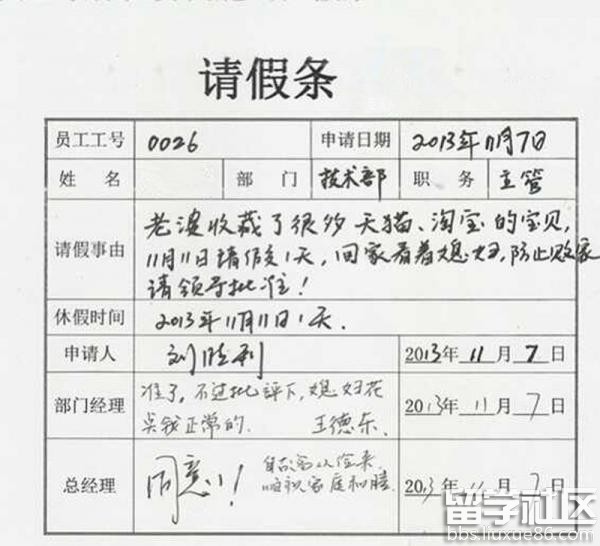 请假条
员工工号 0026 申请日期 2013年11月7日
姓名 部门 技术部 职务 主管
请假事由 老婆收藏了很多天猫、淘宝的宝贝,
11月11日请假1天,回家看着媳妇,防止败家
请领导批准!
休假时间 2013年11月11日1天.
申请人 刘胜利 2013年11月7日
部门经理 准了,不过批评下,媳妇花
钱正常的. 王德东. 2013年11月7日
总经理 同意! 家庭和睦 2013年11月7日
留学社区
bbs.liuxue86.com